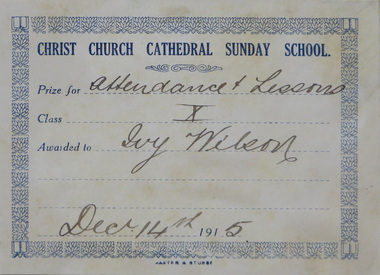 CHRIST CHURCH CATHEDRAL SUNDAY SCHOOL.
Prize for Attendance & Lessons
Class X
Awarded to Ivy Wilson
Decr 14th 1915